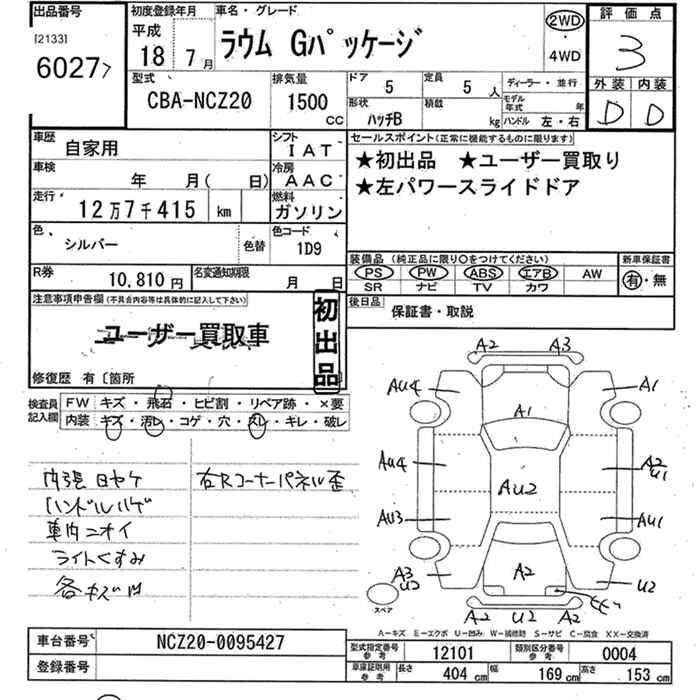 出品番号
[2133]
6027
初度登録年月
平成
18 7月
車名・グレード
ラウム Gパッケージ
2WD
・
4WD
評価点
3
外装 内装
D D
型式
CBA-NCZ20
排気量
1500
CC
ドア
5
定員
5 人
ディーラー・並行
形状
ハッチB
積載
kg
モデル年式 年
ハンドル 左・右
車歴
自家用
シフト
IAT
車検
年 月( 日)
冷房
AAC
走行
12万7千415 km
燃料
ガソリン
色
シルバー
色替
色コード
1D9
R券
10,810円
名変通知期限
月 日
セールスポイント(正常に機能するものに限ります)
★初出品 ★ユーザー買取り
★左パワースライドドア
装備品(純正品に限り〇をつけてください)
新車保証書
PS PW ABS エアB AW
SR ナビ TV カワ
有・無
注意事項申告欄(不具合内容等は具体的に記入して下さい)
ユーザー買取車
初出品
修復歴 有〔箇所
後日品
保証書・取説
検査員記入欄
FW キズ・飛石・ヒビ割・リペア跡・×要
内装 キズ・汚レ・コゲ・穴・スレ・キレ・破レ
内張日ヤケ
ハンドルハゲ
車内ニオイ
ライトくすみ
各キズ凹
右Rコーナーパネル歪
A2 A3
AU4 A1
A1
AU4 A2
U1
AU2
AU3 AU1
A3
U2
A2
U2
スペア
A2 U2 A2
A-キズ E-エクボ U-凹み W-補修跡 S-サビ C-腐食 XX-交換済
車台番号
NCZ20-0095427
登録番号
型式指定番号
参考
12101
類別区分番号
参考
0004
車庫証明用
参考
長さ 404 cm 幅 169 cm 高さ 153 cm